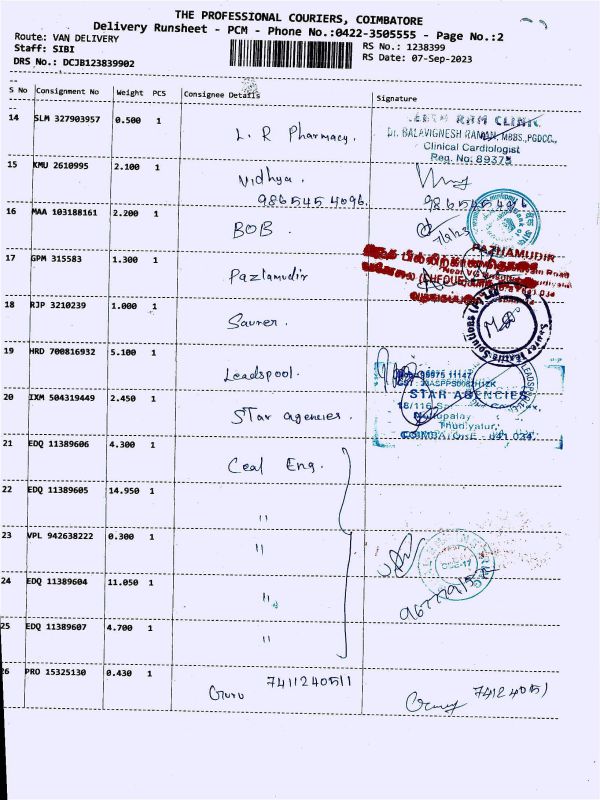 THE PROFESSIONAL COURIERS, COIMBATORE
Delivery Runsheet - PCM - Phone No.:0422-3505555 - Page No.:2
Route: VAN DELIVERY
Staff: SIBI
DRS No.: DCJB123839902
RS No.: 1238399
RS Date: 07-Sep-2023
S No Consignment No Weight PCS Consignee Details Signature
14 SLM 327903957 0.500 1 L. R Pharmacy.
Dr. BALAVIGNESH RAMAN, MBBS.,PGDCC.,
Clinical Cardiologist
Reg. No: 89375
15 KMU 2610995 2.100 1 Vidhya.
9865454096. 9865454096
16 MAA 103188161 2.200 1 BOB
17 GPM 315583 1.300 1 Pazlamudir
PAZHAMUDIR
18 RJP 3210239 1.000 1 Saurer.
19 HRD 700816932 5.100 1 Leadspool.
20 IXM 504319449 2.450 1 Star agencies.
STAR AGENCIES
COIMBATORE - 641 034.
21 EDQ 11389606 4.300 1 Ceal Eng.
22 EDQ 11389605 14.950 1 "
23 VPL 942638222 0.300 1 "
24 EDQ 11389604 11.050 1 "
25 EDQ 11389607 4.700 1 "
26 PRO 15325130 0.430 1 Guru 7411240511